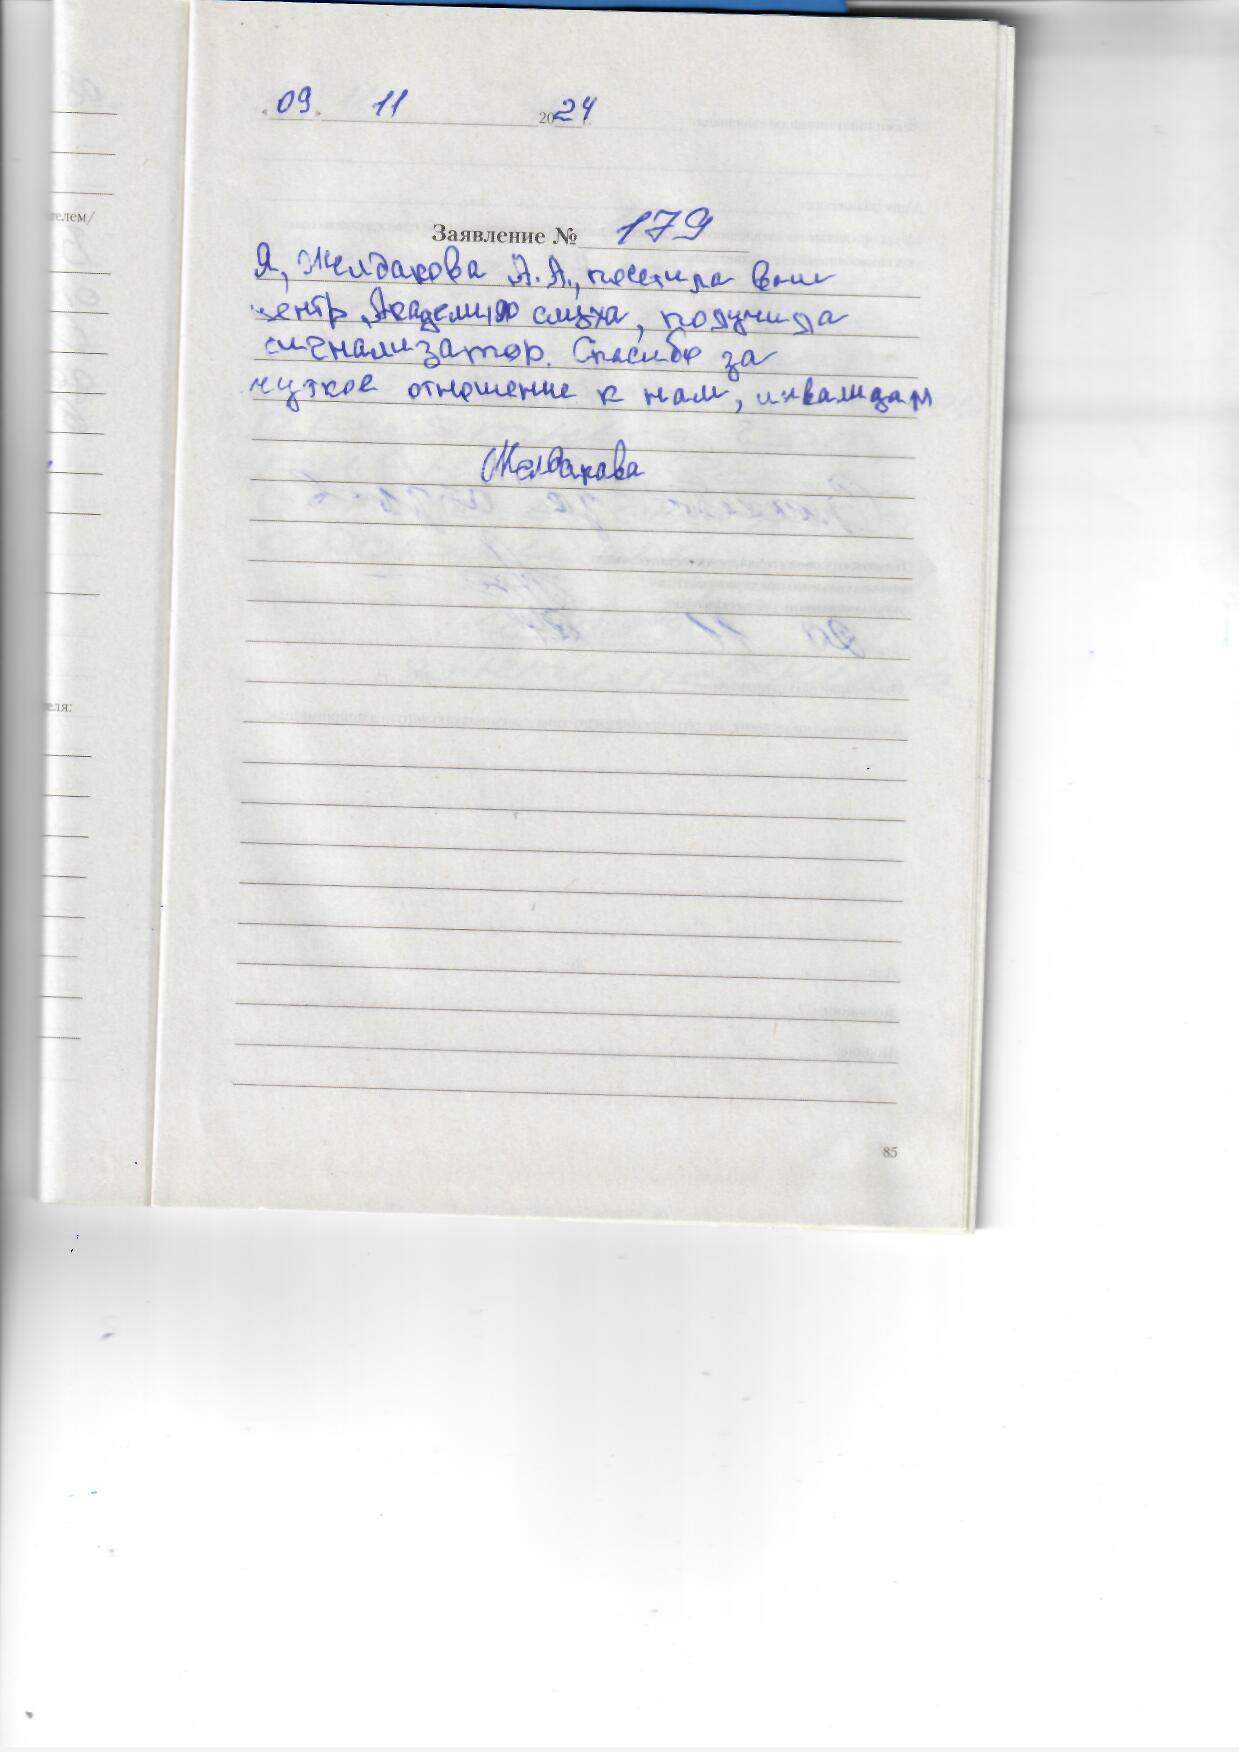 09 11 2024
телем/
Заявление № 179
Я, Желдакова А.А., посетила ваш
центр „Академия слуха, получила
сигнализатор. Спасибо за
чуткое отношение к нам, инвалидам
Желдакова
еля:
85